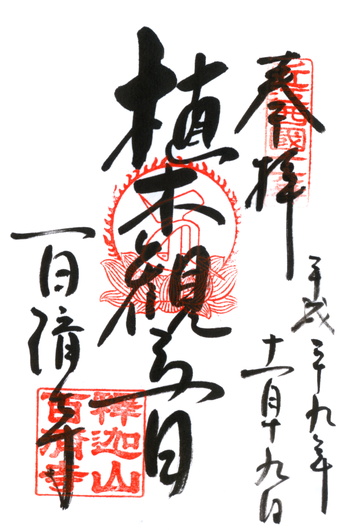 奉拝
平成二十九年
十一月十九日
植木觀音
百済寺
釋迦山
百済寺